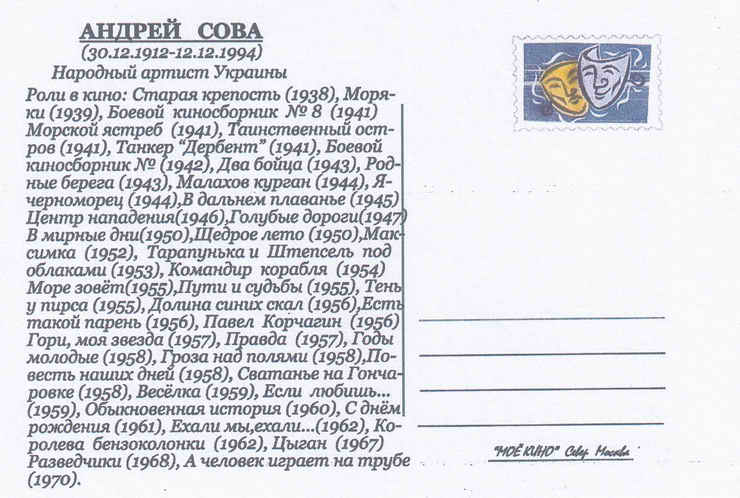 АНДРЕЙ СОВА
(30.12.1912-12.12.1994)
Народный артист Украины
Роли в кино: Старая крепость (1938), Моря-
ки (1939), Боевой киносборник №8 (1941)
Морской ястреб (1941), Таинственный ост-
ров (1941), Танкер "Дербент" (1941), Боевой
киносборник № (1942), Два бойца (1943), Род-
ные берега (1943), Малахов курган (1944), Я-
черноморец (1944),В дальнем плаванье (1945)
Центр нападения(1946),Голубые дороги(1947)
В мирные дни(1950),Щедрое лето (1950),Мак-
симка (1952), Тарапунька и Штепсель под
облаками (1953), Командир корабля (1954)
Море зовёт(1955),Пути и судьбы (1955), Тень
у пирса (1955), Долина синих скал (1956),Есть
такой парень (1956), Павел Корчагин (1956)
Гори, моя звезда (1957), Правда (1957), Годы
молодые (1958), Гроза над полями (1958),По-
весть наших дней (1958), Сватанье на Гонча-
ровке (1958), Весёлка (1959), Если любишь...
(1959), Обыкновенная история (1960), С днём
рождения (1961), Ехали мы,ехали...(1962), Ко-
ролева бензоколонки (1962), Цыган (1967)
Разведчики (1968), А человек играет на трубе
(1970).
"МОЁ КИНО" Север Москва